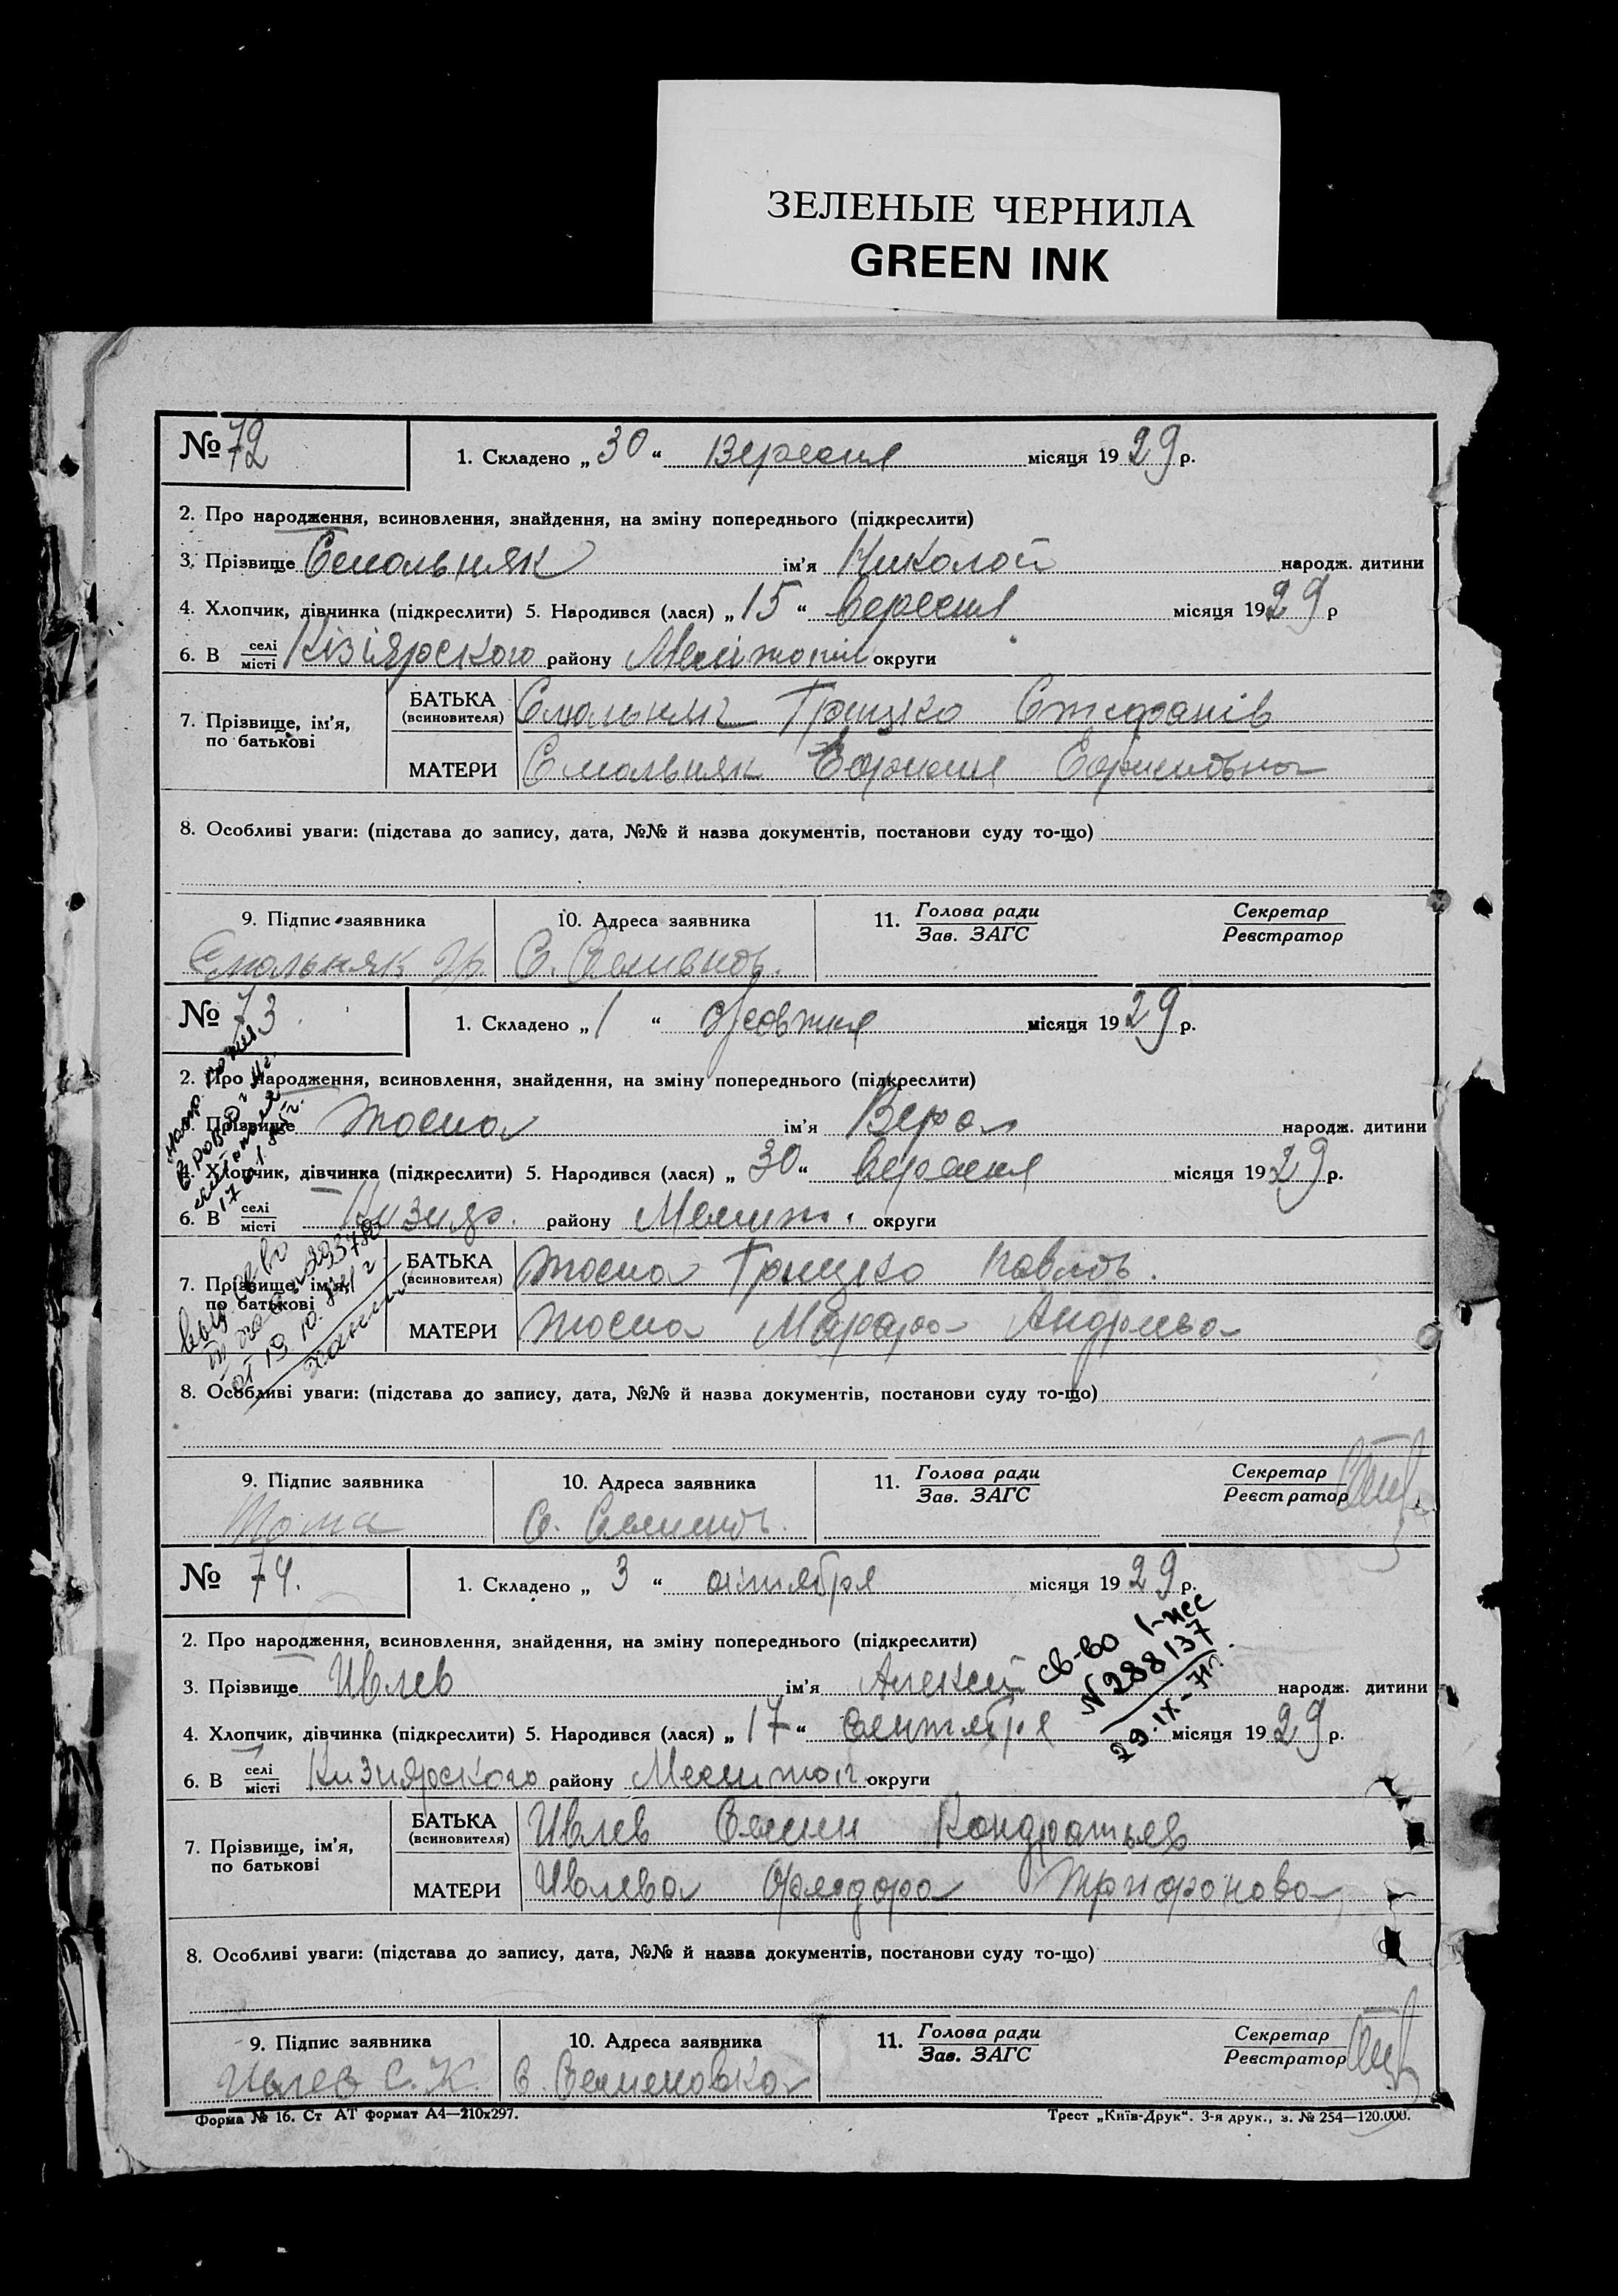 ЗЕЛЕНЫЕ ЧЕРНИЛА
GREEN INK
№ 72
1. Складено „ 30 “ Вересня місяця 1929 р.
2. Про народження, всиновлення, знайдення, на зміну попереднього (підкреслити)
3. Прізвище Смольняк ім'я Николай народж. дитини
4. Хлопчик, дівчинка (підкреслити) 5. Народився (лася) „ 15 “ вересня місяця 1929 р
6. В селі/місті Кізіярского району Мелітопіл округи
7. Прізвище, ім'я, по батькові
БАТЬКА (всиновителя) Смольняк Грицко Стефанів
МАТЕРИ Смольняк
8. Особливі уваги: (підстава до запису, дата, №№ й назва документів, постанови суду то-що)
9. Підпис заявника
10. Адреса заявника
11. Голова ради/Зав. ЗАГС
Секретар/Реєстратор
Смольняк Гр.
№ 73
1. Складено „ 1 “ Жовтня місяця 1929 р.
2. Про народження, всиновлення, знайдення, на зміну попереднього (підкреслити)
3. Прізвище ім'я Вера народж. дитини
4. Хлопчик, дівчинка (підкреслити) 5. Народився (лася) „ 30 “ вересня місяця 1929 р.
6. В селі/місті Кизияр. району Мелит. округи
7. Прізвище, ім'я, по батькові
БАТЬКА (всиновителя) Грицко Павлов.
МАТЕРИ Марфа Андреева
8. Особливі уваги: (підстава до запису, дата, №№ й назва документів, постанови суду то-що)
9. Підпис заявника
10. Адреса заявника
11. Голова ради/Зав. ЗАГС
Секретар/Реєстратор
№ 74.
1. Складено „ 3 “ октября місяця 1929 р.
2. Про народження, всиновлення, знайдення, на зміну попереднього (підкреслити)
св-во
N 288137
29.IX-71г.
3. Прізвище Ивлев ім'я Алексей народж. дитини
4. Хлопчик, дівчинка (підкреслити) 5. Народився (лася) „ 17 “ Сентября місяця 1929 р.
6. В селі/місті Кизиярского району Мелитоп округи
7. Прізвище, ім'я, по батькові
БАТЬКА (всиновителя) Ивлев Семен Кондратьев
МАТЕРИ Ивлева Федора Трифонова
8. Особливі уваги: (підстава до запису, дата, №№ й назва документів, постанови суду то-що)
9. Підпис заявника
10. Адреса заявника
11. Голова ради/Зав. ЗАГС
Секретар/Реєстратор
Ивлев С. К. С. Семеновка
Форма № 16. Ст АТ формат А4—210х297.
Трест „Київ-Друк“. 3-я друк., з. № 254—120.000.